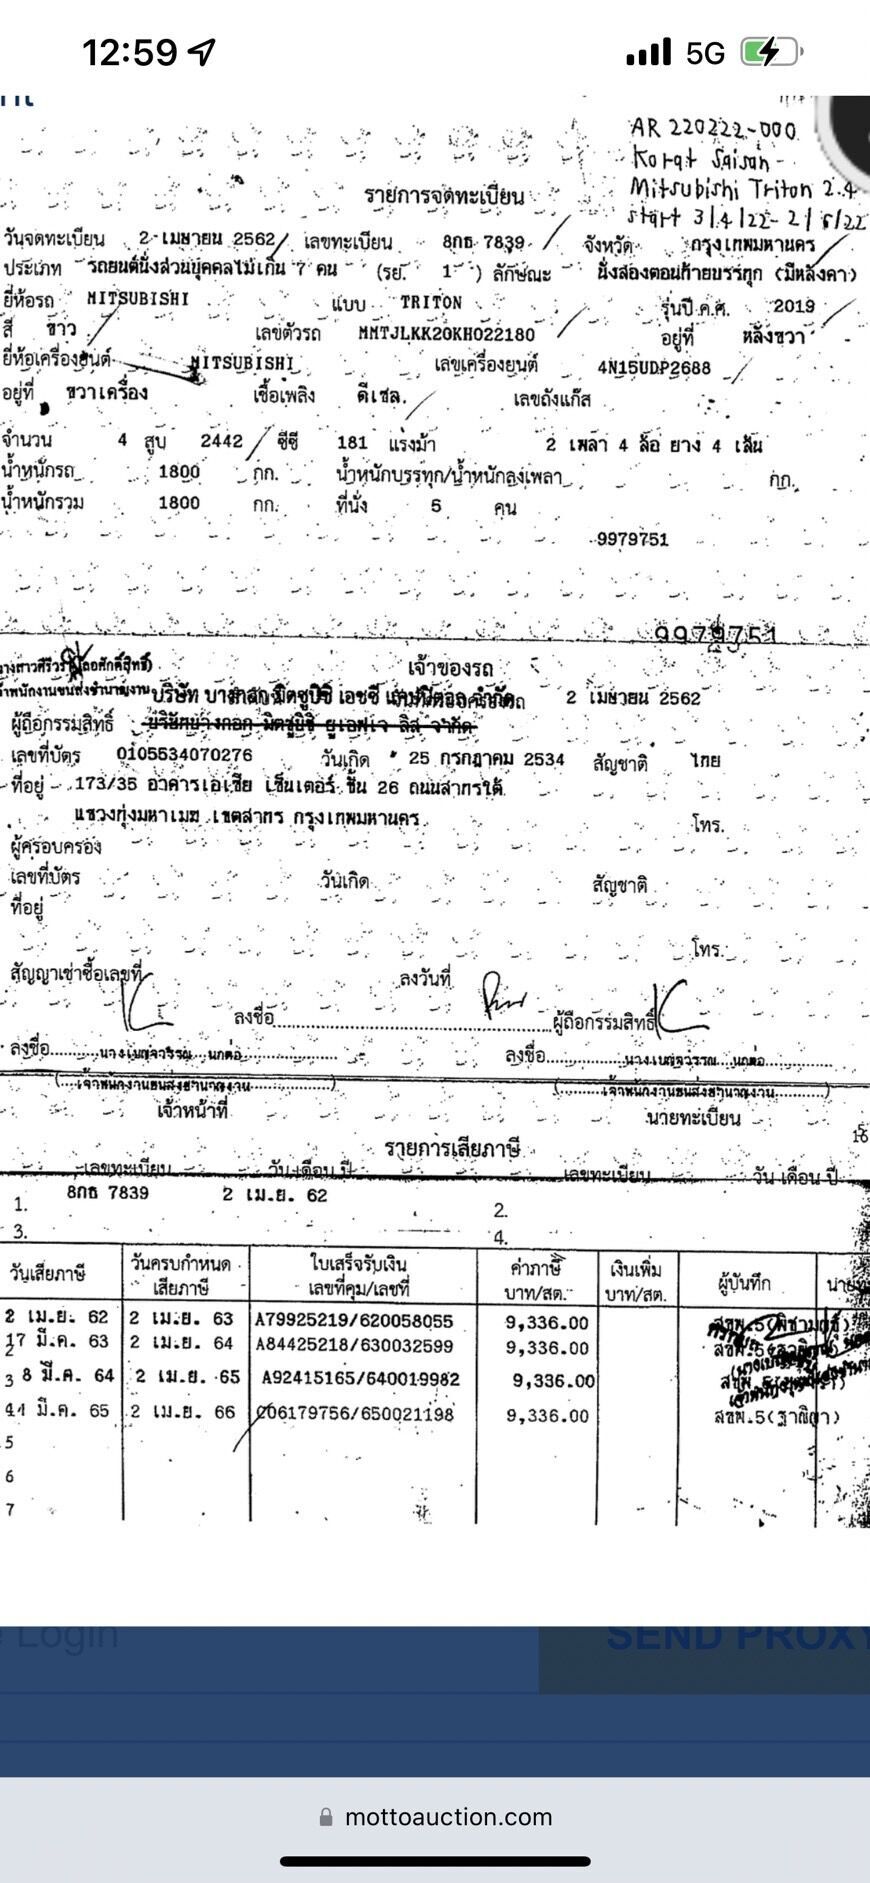 12:59
5G
AR 220222-000
Korat Saisan -
Mitsubishi Triton 2.4
start 3/4/22-2/5/22
รายการจดทะเบียน
วันจดทะเบียน 2 เมษายน 2562 เลขทะเบียน 8กธ 7839 จังหวัด กรุงเทพมหานคร
ประเภท รถยนต์นั่งส่วนบุคคลไม่เกิน 7 คน (รย. 1 ) ลักษณะ นั่งสองตอนท้ายบรรทุก (มีหลังคา)
ยี่ห้อรถ MITSUBISHI แบบ TRITON รุ่นปี ค.ศ. 2019
สี ขาว เลขตัวรถ MMTJLKK20KH022180 อยู่ที่ หลังขวา
ยี่ห้อเครื่องยนต์ MITSUBISHI เลขเครื่องยนต์ 4N15UDP2688
อยู่ที่ ขวาเครื่อง เชื้อเพลิง ดีเซล เลขถังแก๊ส
จำนวน 4 สูบ 2442 ซีซี 181 แรงม้า 2 เพลา 4 ล้อ ยาง 4 เส้น
น้ำหนักรถ 1800 กก. น้ำหนักบรรทุก/น้ำหนักลงเพลา กก.
น้ำหนักรวม 1800 กก. ที่นั่ง 5 คน
9979751
9979751
เจ้าของรถ
2 เมษายน 2562
ผู้ถือกรรมสิทธิ์ บริษัทบางกอก มิตซูบิชิ ยูเอฟเจ ลีส จำกัด
เลขที่บัตร 0105534070276 วันเกิด 25 กรกฎาคม 2534 สัญชาติ ไทย
ที่อยู่ 173/35 อาคารเอเชีย เซ็นเตอร์ ชั้น 26 ถนนสาทรใต้
แขวงทุ่งมหาเมฆ เขตสาทร กรุงเทพมหานคร โทร.
ผู้ครอบครอง
เลขที่บัตร วันเกิด สัญชาติ
ที่อยู่
โทร.
สัญญาเช่าซื้อเลขที่ ลงวันที่
ลงชื่อ ผู้ถือกรรมสิทธิ์
ลงชื่อ นางเบญจวรรณ นกต่อ ลงชื่อ นางเบญจวรรณ นกต่อ
(เจ้าพนักงานขนส่งชำนาญงาน) (เจ้าพนักงานขนส่งชำนาญงาน)
เจ้าหน้าที่ นายทะเบียน
16
รายการเสียภาษี
เลขทะเบียน วัน เดือน ปี เลขทะเบียน วัน เดือน ปี
1. 8กธ 7839 2 เม.ย. 62 2.
3. 4.
วันเสียภาษี วันครบกำหนดเสียภาษี ใบเสร็จรับเงิน เลขที่คุม/เลขที่ ค่าภาษี บาท/สต. เงินเพิ่ม บาท/สต. ผู้บันทึก
2 เม.ย. 62 2 เม.ย. 63 A79925219/620058055 9,336.00 สขพ.5
17 มี.ค. 63 2 เม.ย. 64 A84425218/630032599 9,336.00 สขพ.5
2
3 8 มี.ค. 64 2 เม.ย. 65 A92415165/640019982 9,336.00
11 มี.ค. 65 2 เม.ย. 66 C06179756/650021198 9,336.00 สขพ.5(ฐาณิญา)
5
6
7
Login
SEND PROXY
mottoauction.com